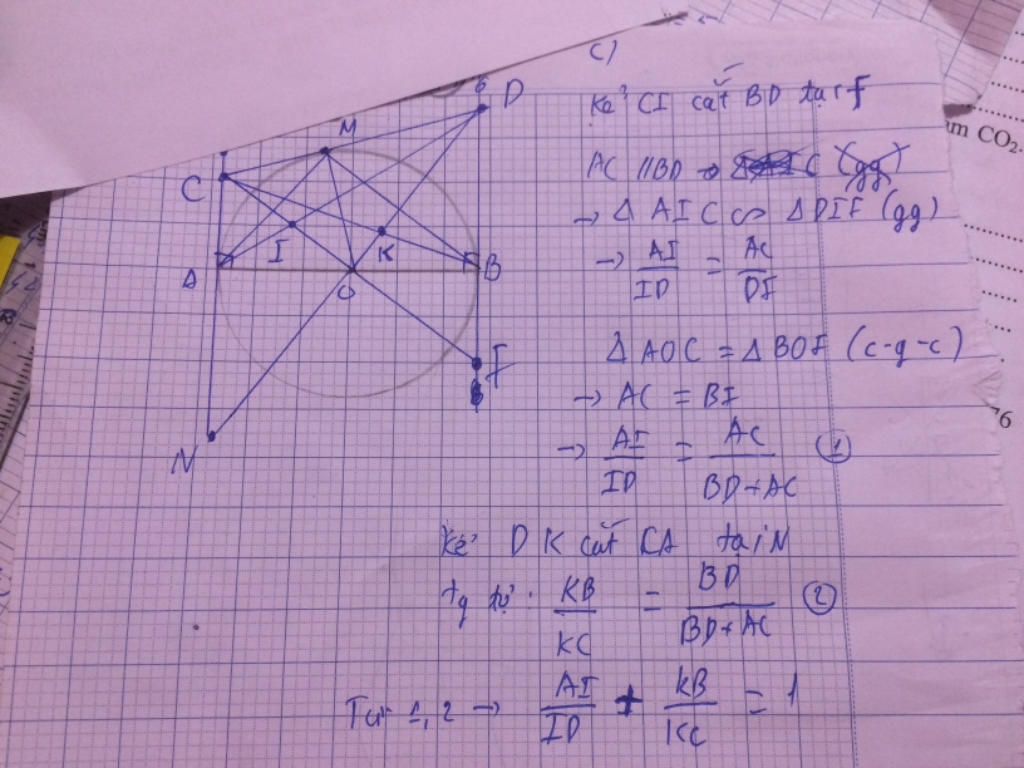 c)
Kẻ CI cắt BD tại F
AC // BD → C (gg)
→ Δ AIC ∽ ΔDIF (gg)
→ AI/ID = AC/DF
Δ AOC = Δ BOF (c-g-c)
→ AC = BF
→ AI/ID = AC/BD+AC (1)
Kẻ DK cắt CA tại N
tg tự: KB/KC = BD/BD+AC (2)
Từ 1, 2 → AI/ID + KB/KC = 1
M
D
C
A
I
K
B
O
F
N
m CO₂.